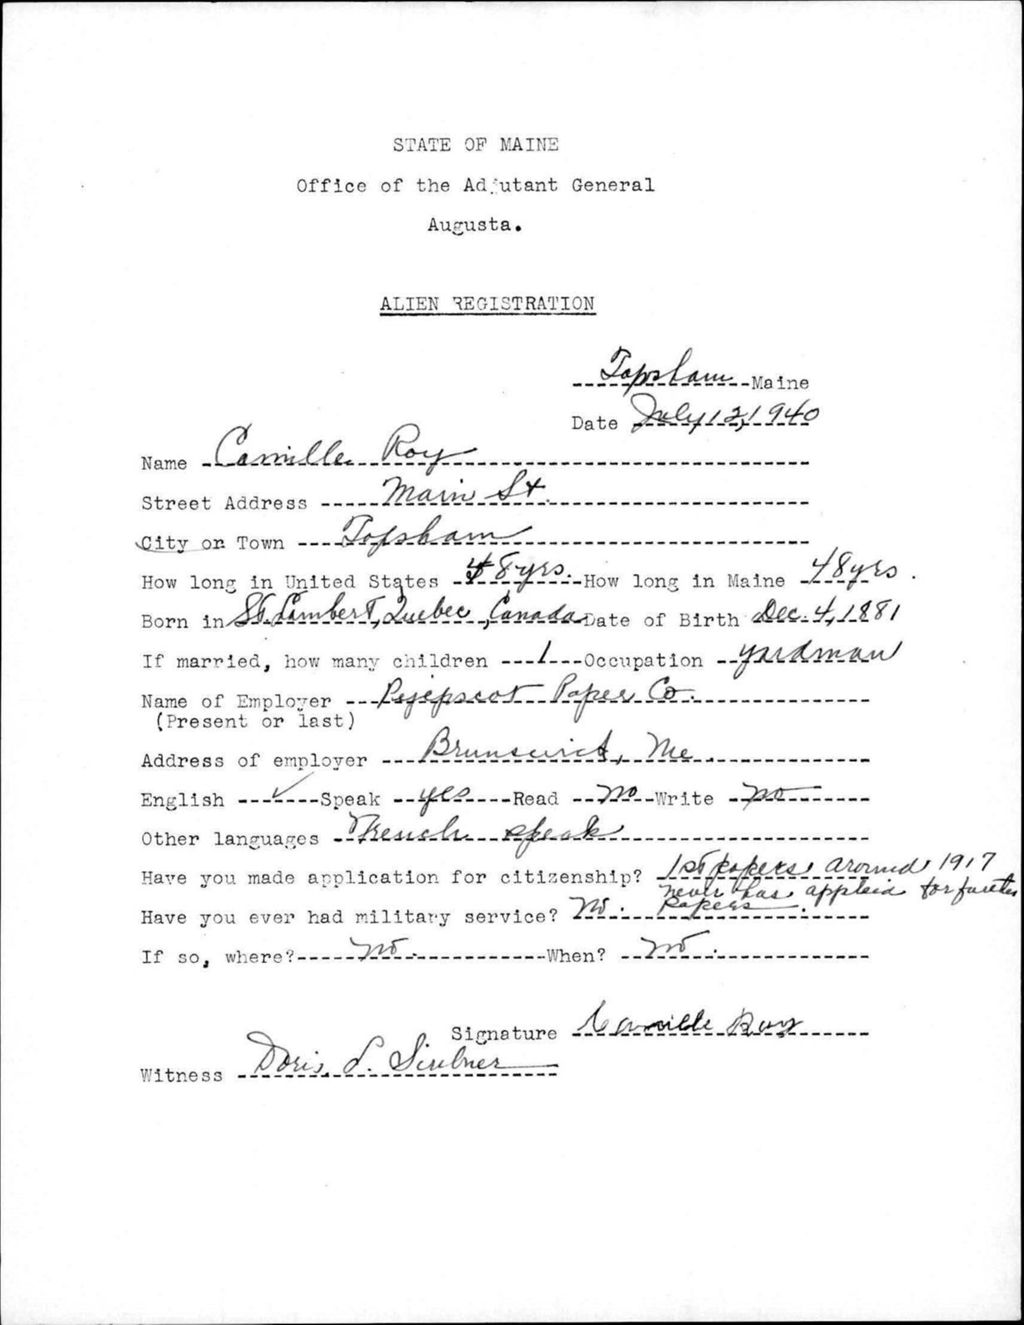 STATE OF MAINE
Office of the Adjutant General
Augusta.
ALIEN REGISTRATION
Topsham Maine
Date July 12, 1940
Name Camille Roy
Street Address Main St.
City or Town Topsham
How long in United States 48 yrs. How long in Maine 48 yrs.
Born in St. Lambert, Quebec, Canada Date of Birth Dec. 4, 1881
If married, how many children 1 Occupation yardman
Name of Employer Pejepscot Paper Co.
(Present or last)
Address of employer Brunswick, Me.
English ✓ Speak yes Read no Write no
Other languages French speak
Have you made application for citizenship? 1st papers around 1917
never has applied for further
Have you ever had military service? No. papers.
If so, where? no. When? no.
Signature Camille Roy
Witness Doris L.